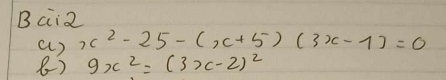 Bài 2
a) x² - 25 - (x+5) (3x - 1) = 0
b) 9x² = (3x-2)²